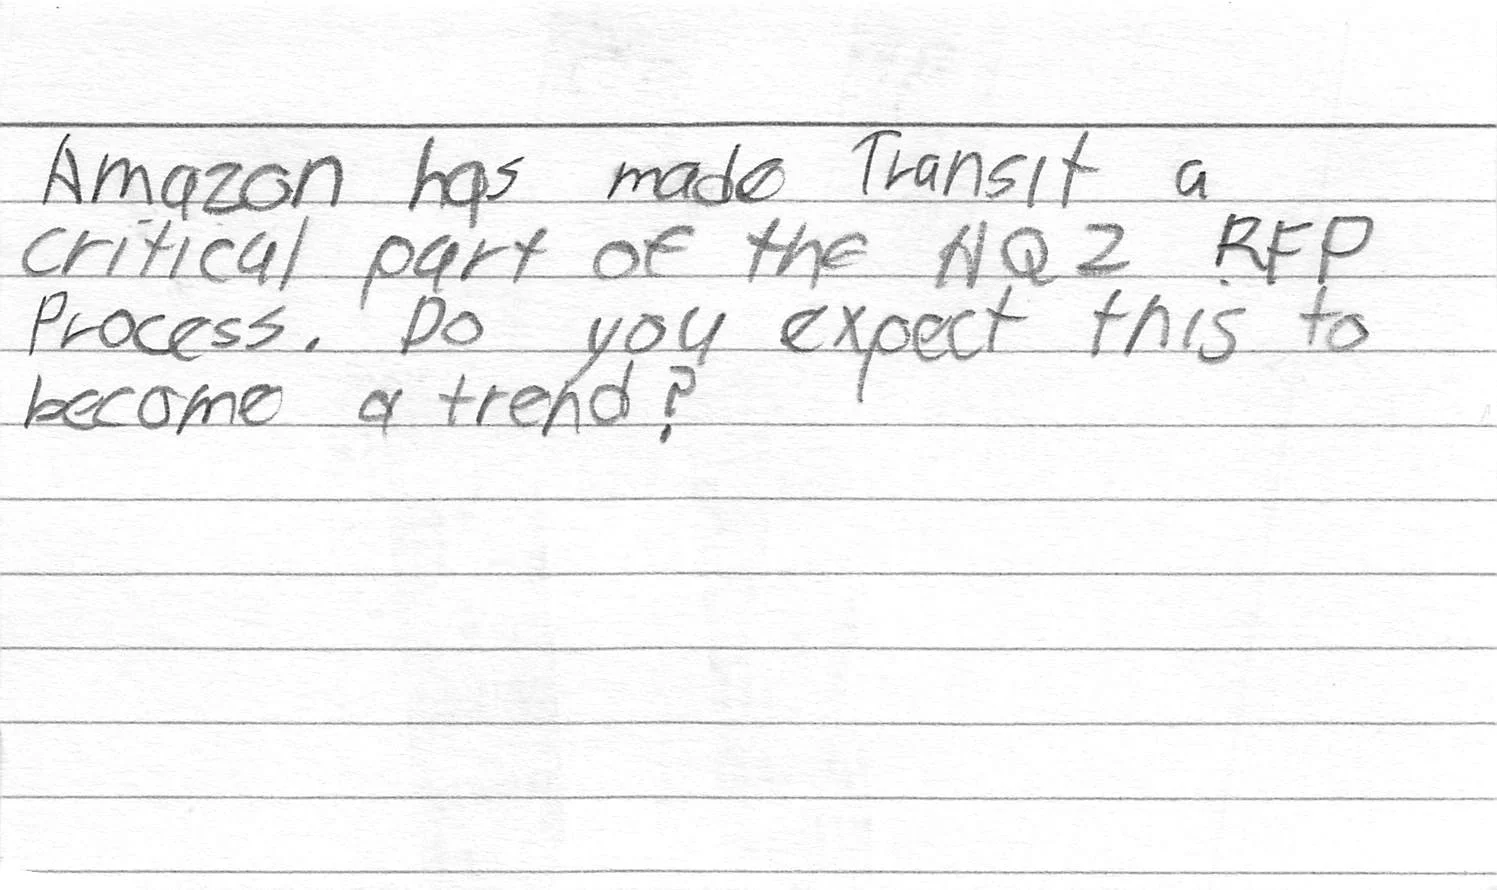 Amazon has made Transit a
critical part of the HQ2 RFP
Process. Do you expect this to
become a trend?